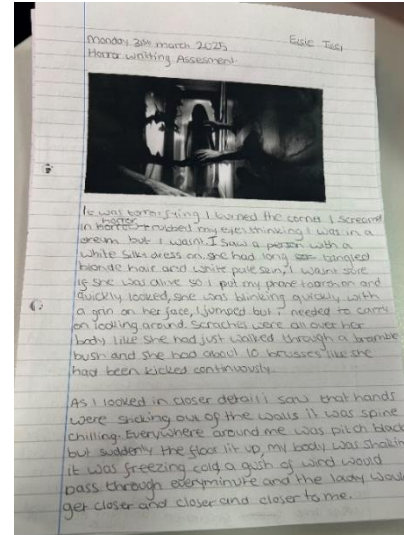 monday 31st march 2025
Horror writting Assesment
It was terrorifying I turned the corner I screamed
in horror rubbed my eyes thinking I was in a
dream but I wasnt. I saw a person with a
white silks dress on, she had long tangled
blonde hair and white pale skin, I wasnt sure
if she was alive so I put my phone toarch on and
quickly looked, she was blinking quickly with
a grin on her face, I jumped but I needed to carry
on looking around. Scraches were all over her
body like she had just walked through a bramble
bush and she had about 10 brusses like she
had been kicked continuously.
As I looked in closer detail I saw that hands
were sticking out of the walls it was spine
chilling. Everywhere around me was pitch black
but suddenly the floor lit up, my body was shaking
it was freezing cold a gush of wind would
pass through everyminute and the lady would
get closer and closer and closer to me.